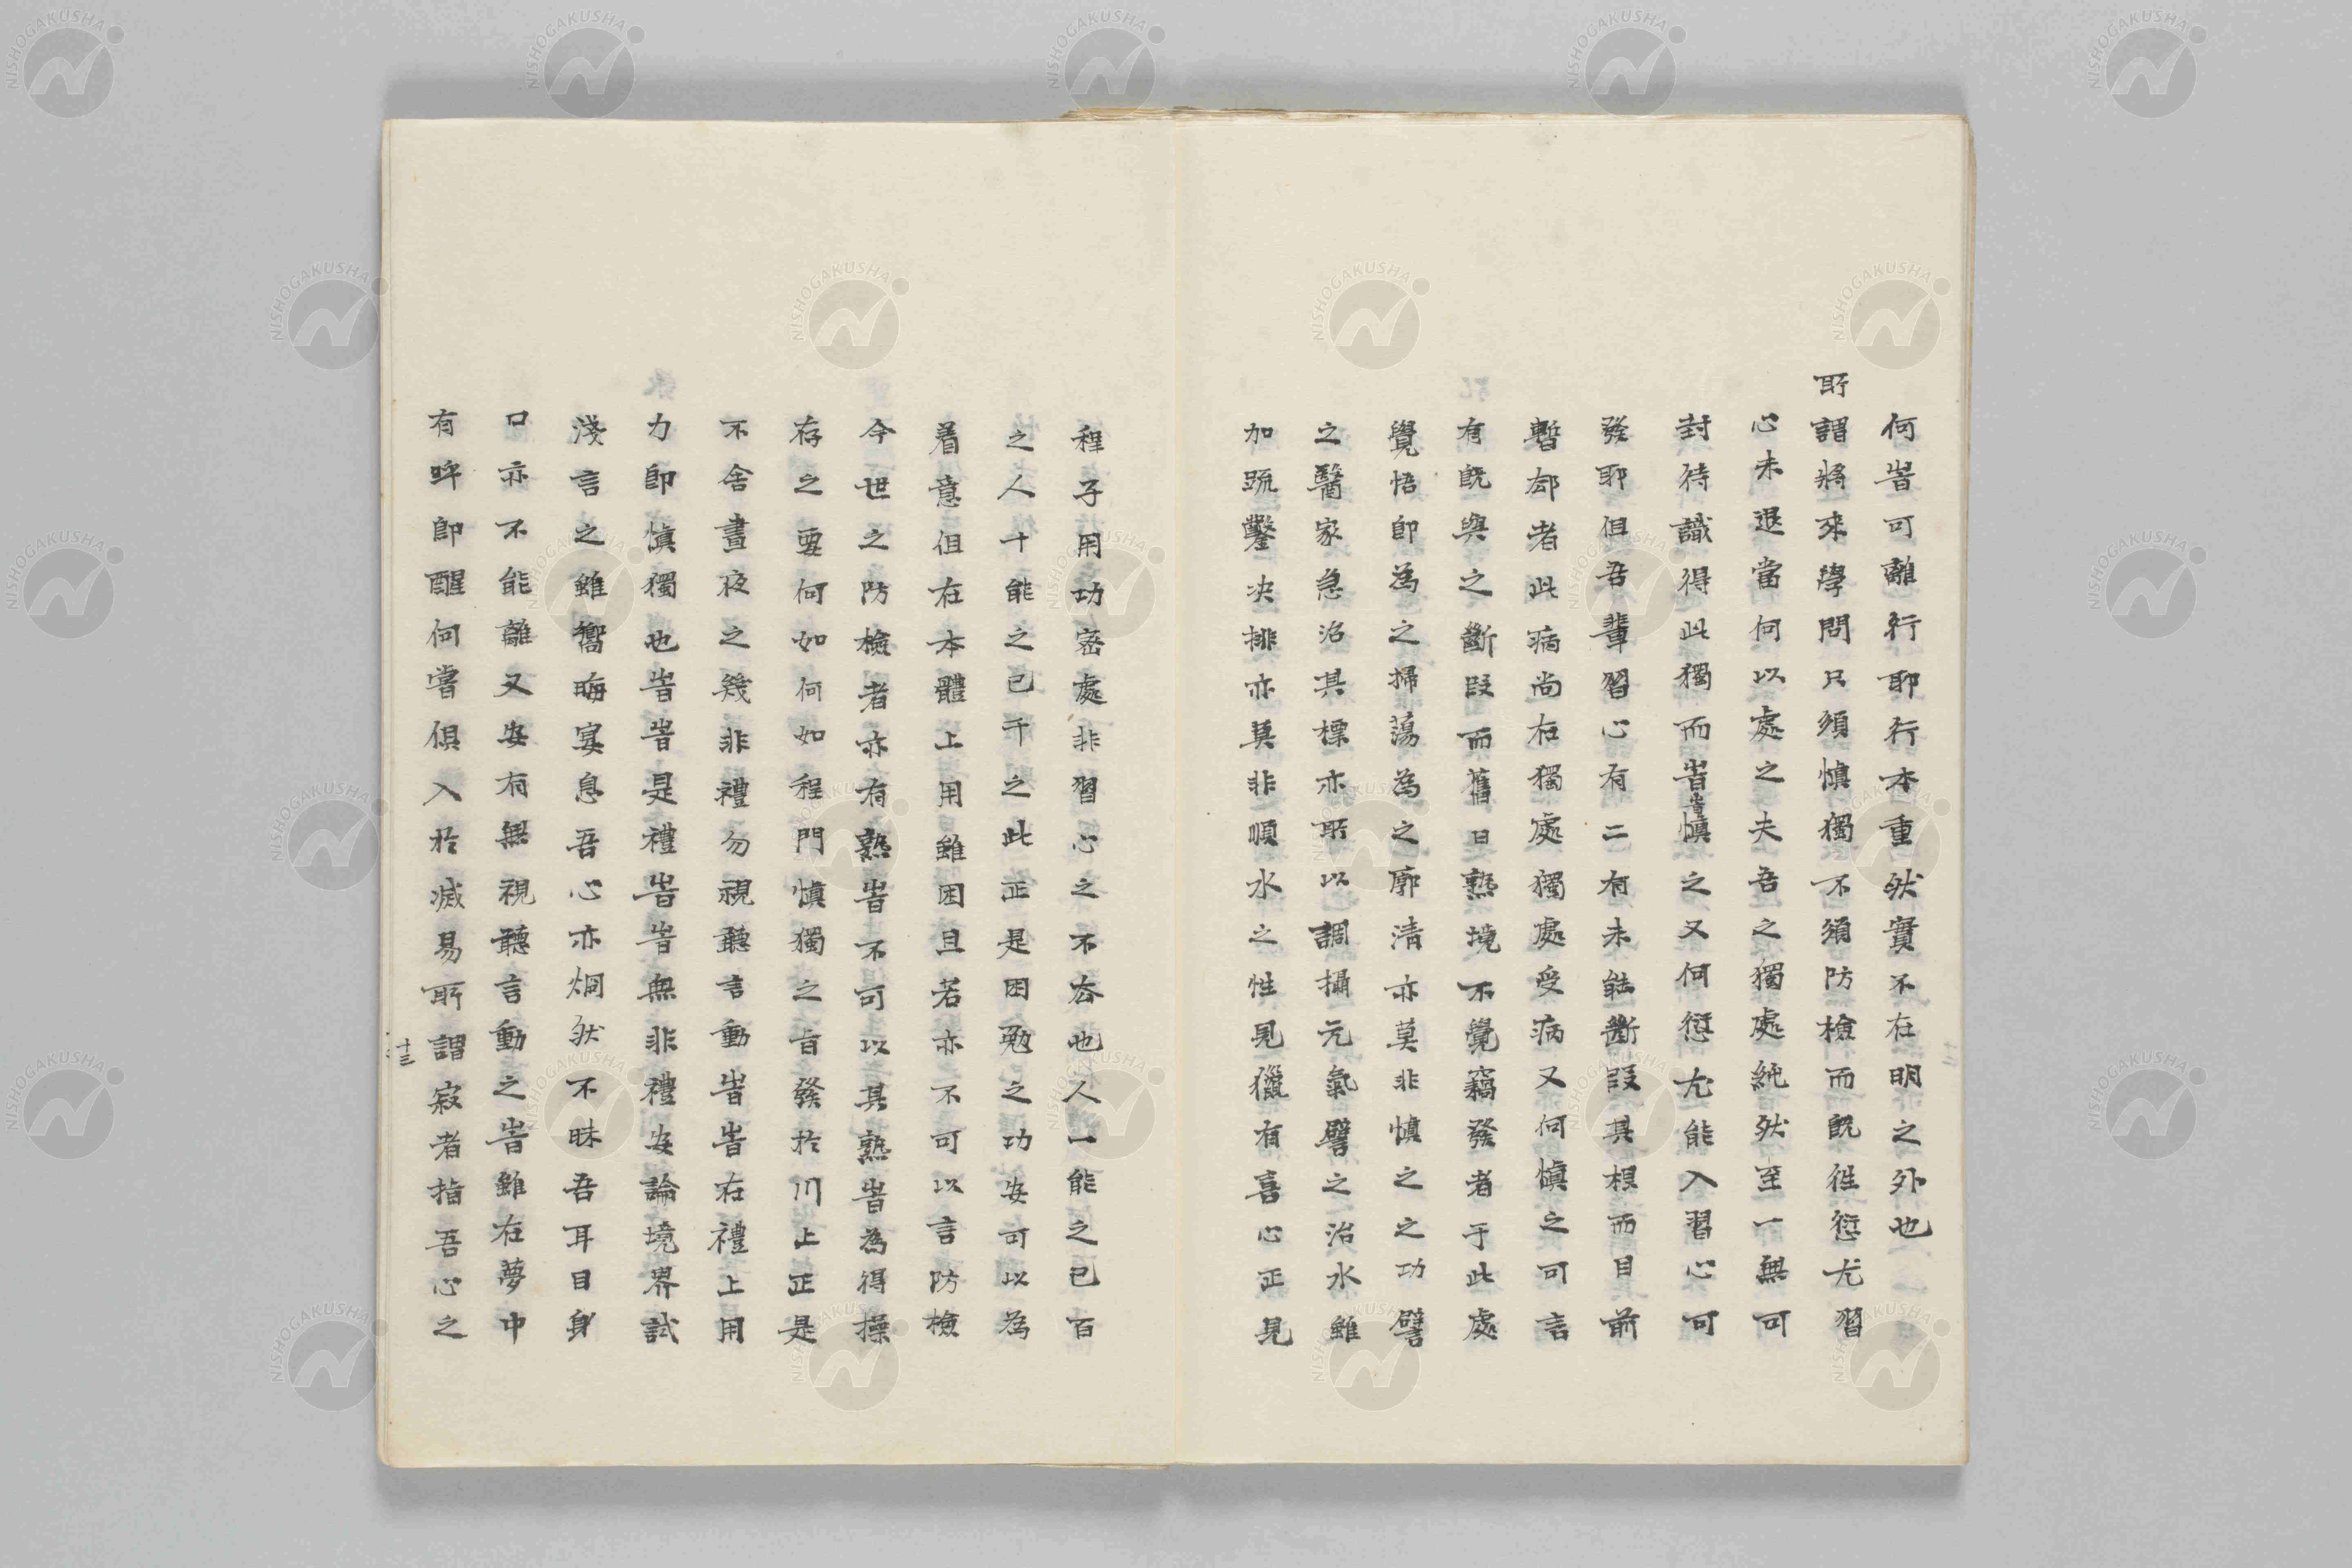 何甞可離行耶行本重然實不在明之外也
所謂將來學問只須慎獨不須防檢而既徃愆尤習
心未退當何以處之夫吾之獨處純然至一無可
封待識得此獨而甞甞慎之又何愆尤能入習心可
發耶但吾輩習心有二有未能斷段其根而目前
暫却者此病尚在獨處獨處受病又何慎之可言
有既與之斷段而舊日熟境不覺竊發者于此處
覺悟即為之掃蕩為之廓清亦莫非慎之之功譬
之醫家急治其標亦所以調攝元氣譬之治水雖
加疏鑿决排亦莫非順水之性見獵有喜心正見
程子用功密處非習心之不容也人一能之已百
之人十能之已千之此正是困勉之功安可以為
着意但在本體上用雖困且若亦不可以言防檢
今世之防檢者亦有熟甞不可以其熟甞為得操
存之要何如何如程門慎獨之旨發於川上正是
不舍晝夜之幾非禮勿視聽言動甞甞在禮上用
力即慎獨也甞甞是禮甞甞無非禮安論境界試
淺言之雖嚮晦宴息吾心亦烱然不昧吾耳目身
口亦不能離又安有無視聽言動之甞雖在夢中
有呼即醒何嘗俱入於滅易所謂寂者指吾心之
十三
NISHOGAKUSHA